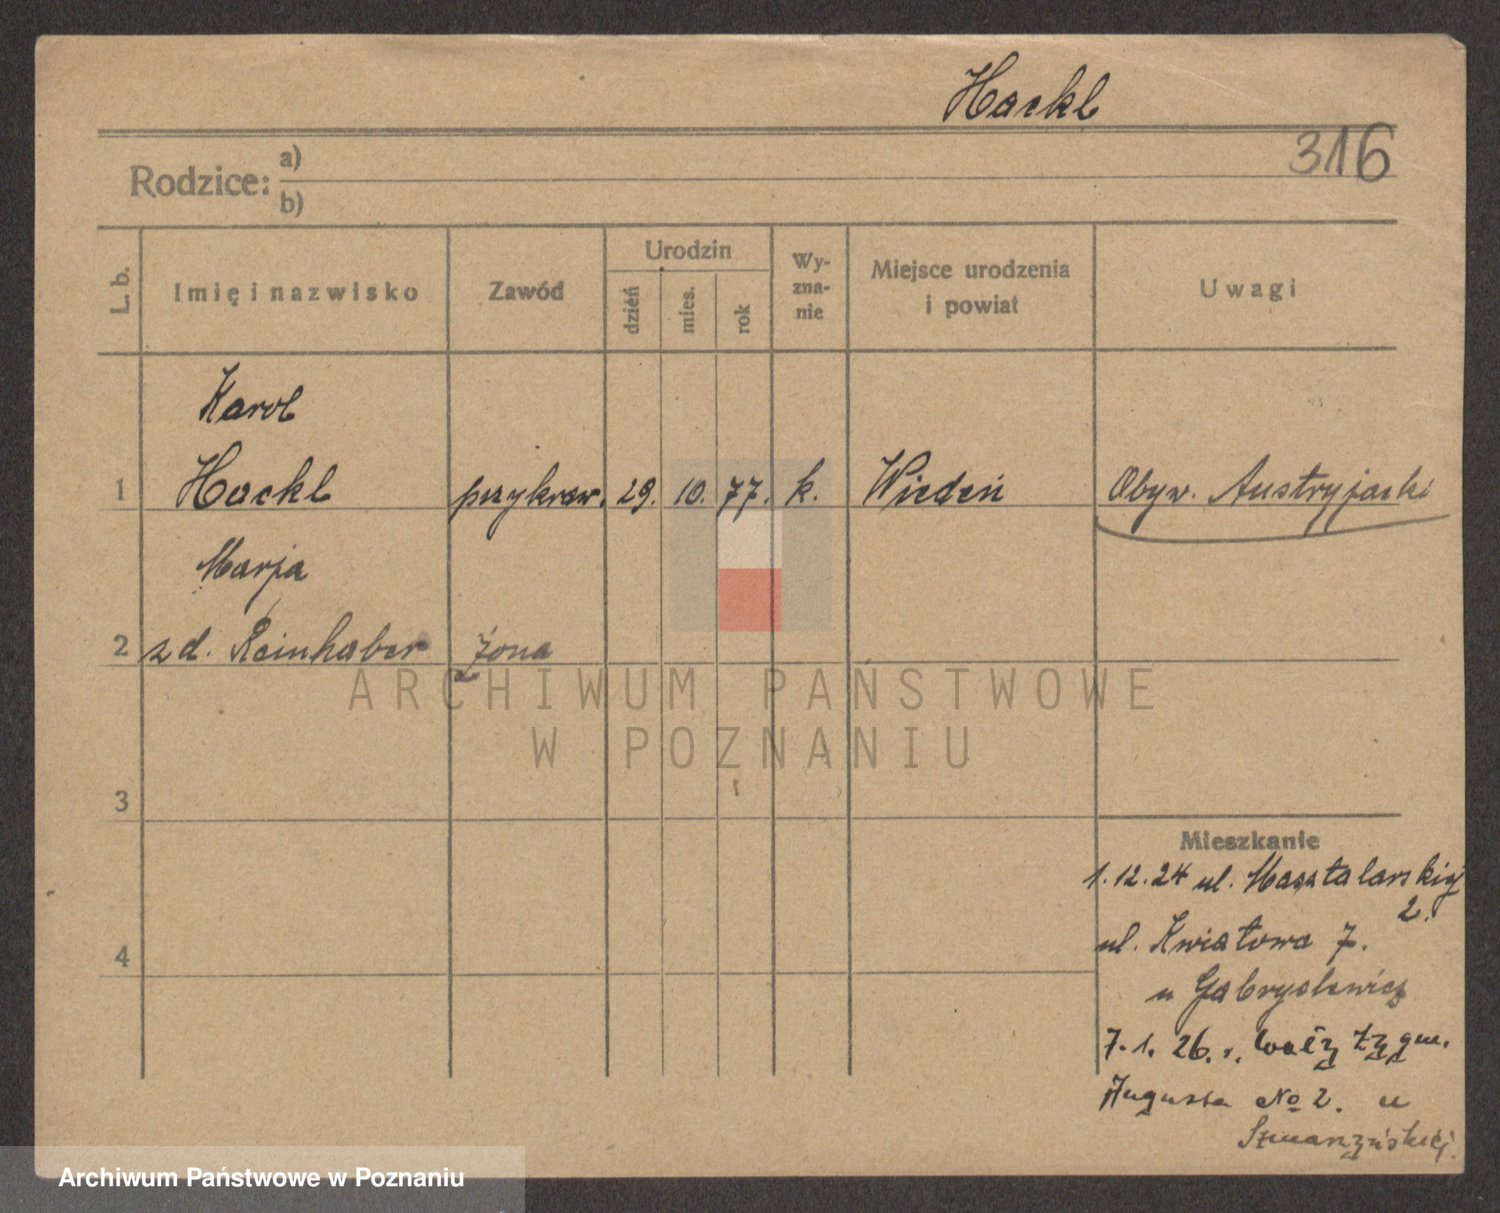 Hackl
316
Rodzice: a)
b)
L. b.
Imię i nazwisko
Zawód
Urodzin
dzień
mies.
rok
Wy-
zna-
nie
Miejsce urodzenia
i powiat
Uwagi
Karol
1 Hackl przykraw. 29. 10. 77. k. Wiedeń Obyw. Austryjacki
Marja
2 z d. Reinhaber żona
ARCHIWUM PAŃSTWOWE
W POZNANIU
3
Mieszkanie
1.12.24 ul. Masztalarskiej
2.
ul. Kwiatowa 7.
4
u Gabryelewicz
7.1.26. Wały Zygm.
Augusta No 2. u
Szmarzyńskiej.
Archiwum Państwowe w Poznaniu